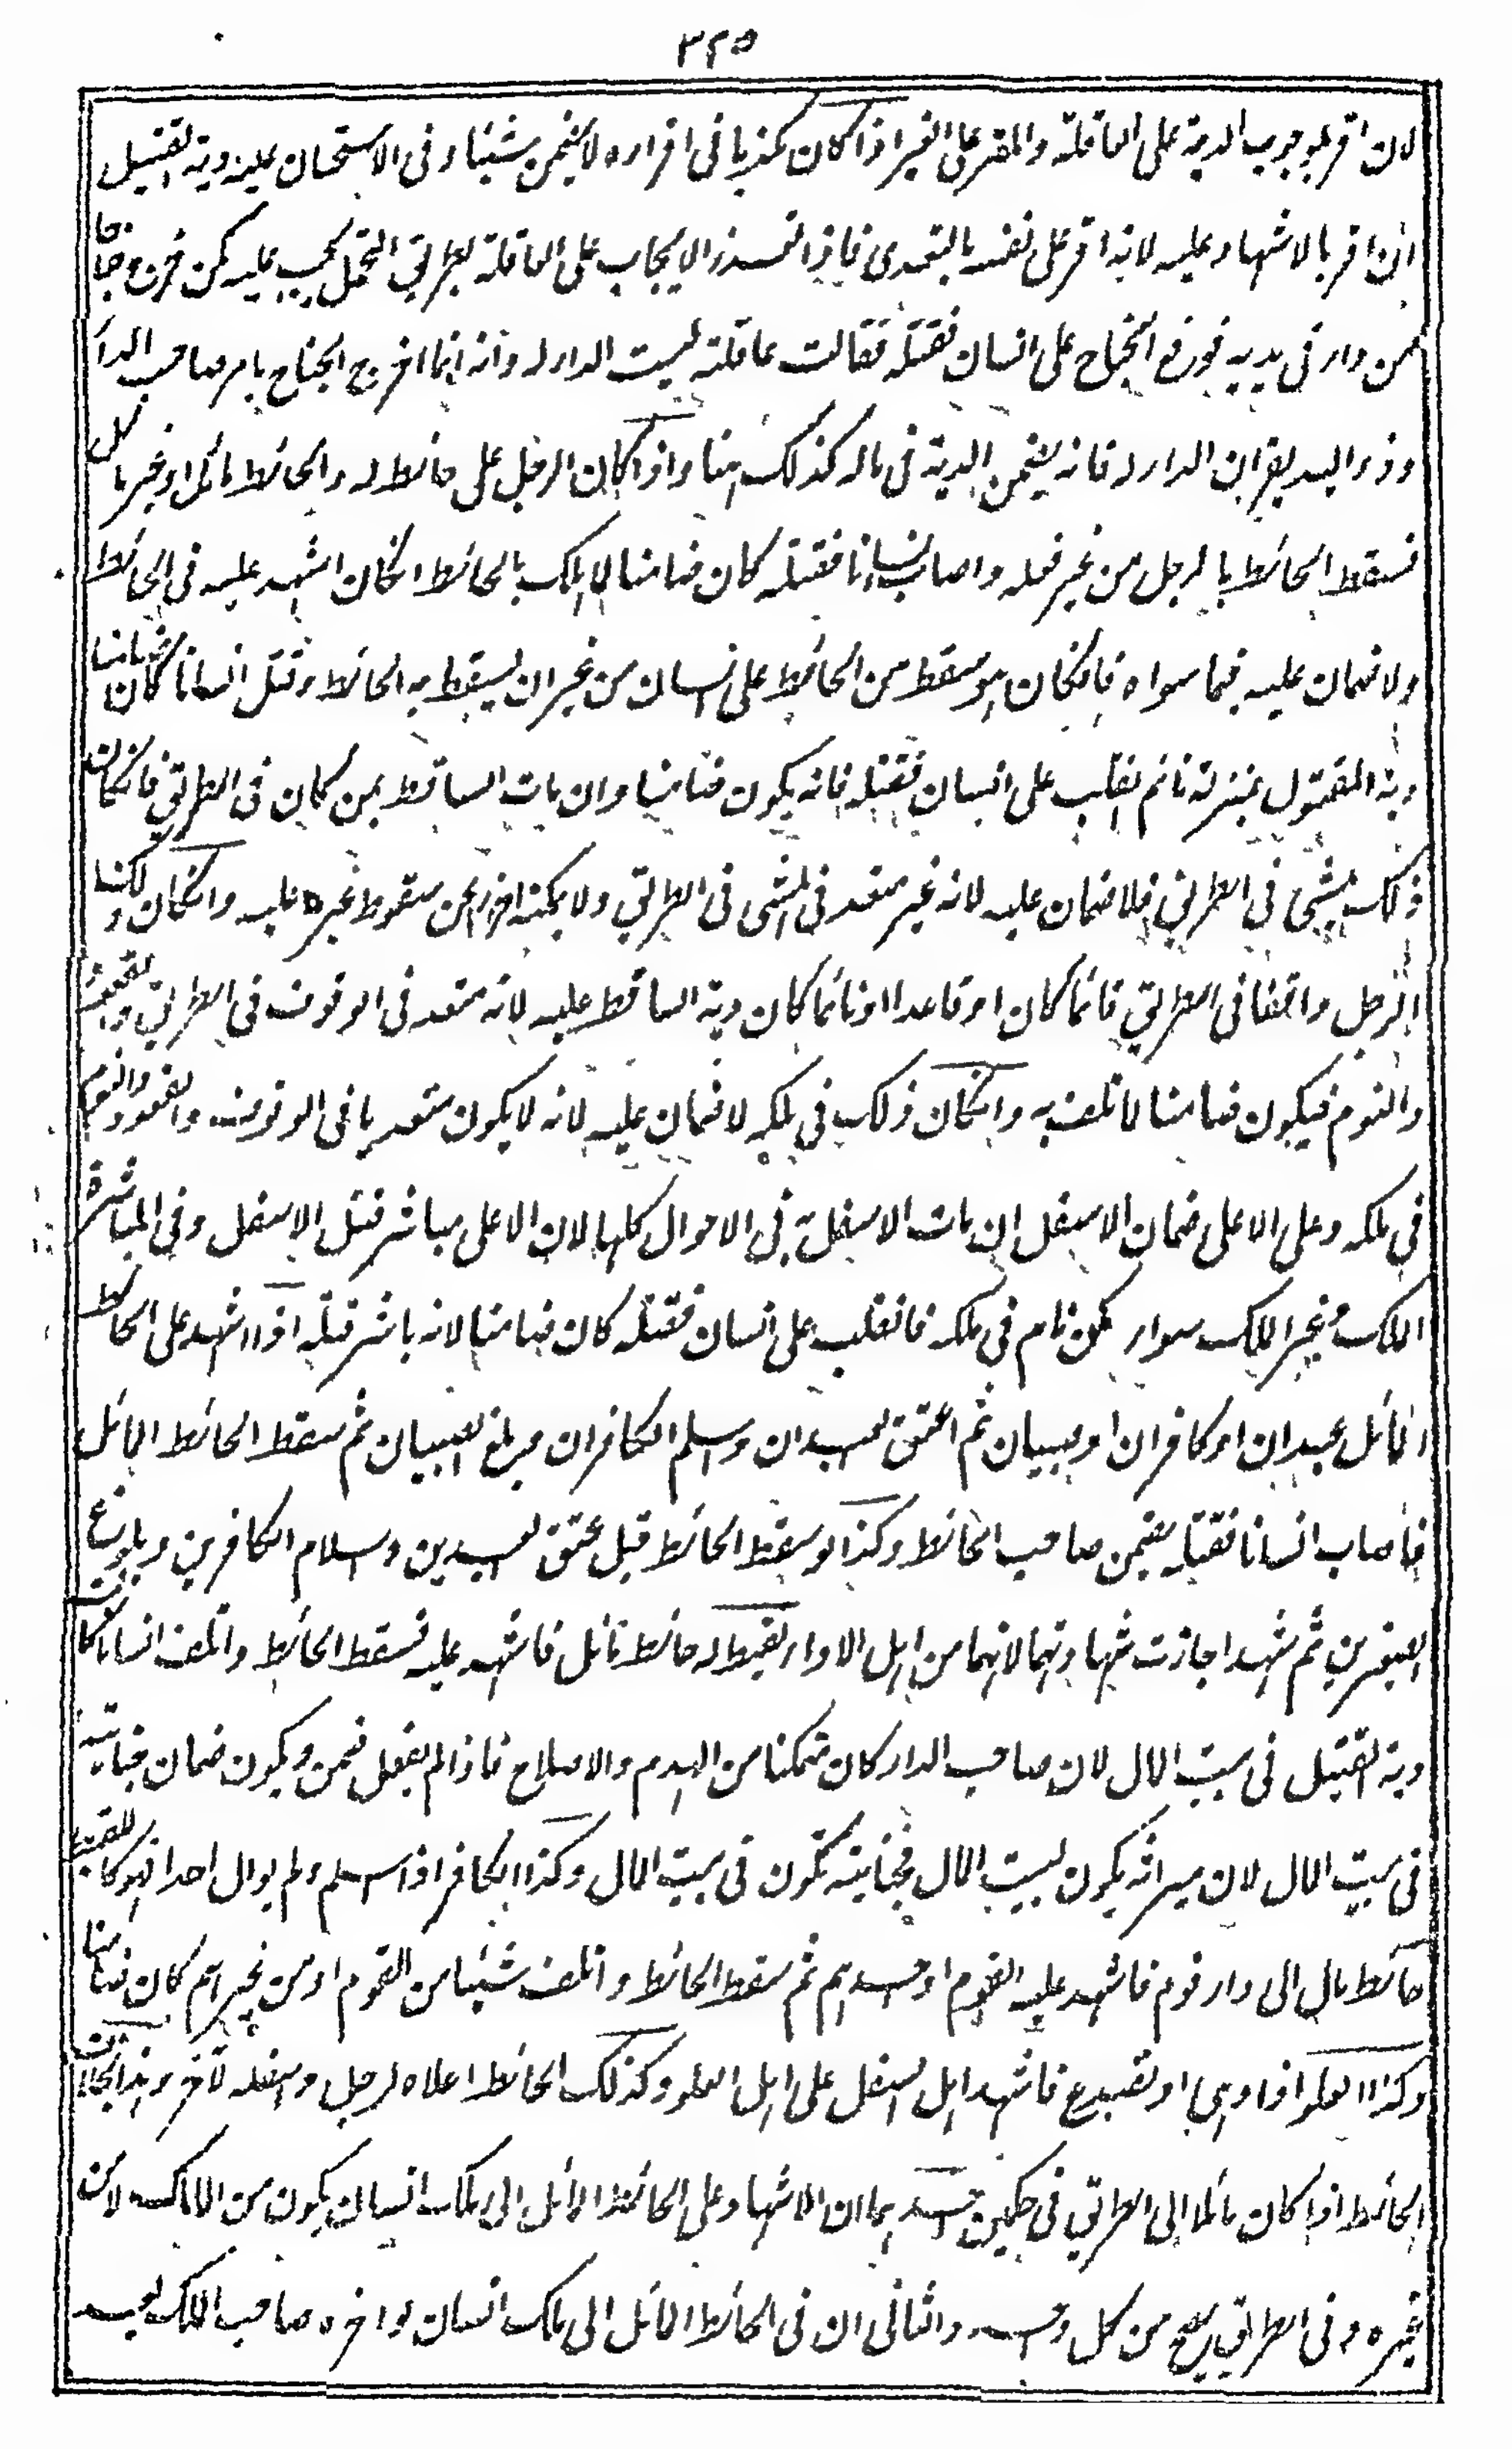 ٣٢٥
لان اقر بوجوب الدية على العاقلة والمقر على الغير اذا كان مكذبا فى اقراره لا يضمن شيئا وفى الاستحسان عليه دية القتيل
ان اقر بالاشهاد عليه لانه اقر على نفسه بالتعدى فاذا تعذر الايجاب على العاقلة بطريق التحمل يجب عليه كمن اخرج جناحا
من دار فى يديه فوقع الجناح على انسان فقتله فقالت عاقلته ليست الدار له وانه انما اخرج الجناح بامر صاحب الدار
وذو اليد يقر ان الدار له فانه يضمن الدية فى ماله كذلك هنا واذا كان الرجل على حائط له والحائط مائل او غير مائل
فسقط الحائط بالرجل من غير فعله واصاب انسانا فقتله كان ضامنا لما هلك بالحائط انكان اشهد عليه فى الحائط
ولا ضمان عليه فيما سواه فانكان هو سقط من الحائط على انسان من غير ان يسقط به الحائط وقتل انسانا كان ضامنا
دية المقتول بمنزلة نائم انقلب على انسان فقتله فانه يكون ضامنا وان مات الساقط بمن كان فى الطريق فانكان
ذلك يمشى فى الطريق فلا ضمان عليه لانه غير متعد فى المشى فى الطريق ولا يمكنه احترازعن سقوط غيره عليه وانكان ذلك
الرجل واقفا فى الطريق قائما كان او قاعدا او نائما كان دية الساقط عليه لانه متعد فى الوقوف فى الطريق والقعود
والنوم فيكون ضامنا لما تلف به وانكان ذلك فى ملكه لا ضمان عليه لانه لا يكون متعديا فى الوقوف والقعود والنوم
فى ملكه وعلى الاعلى ضمان الاسفل ان مات الاسفل به فى الاحوال كلها لان الاعلى مباشر قتل الاسفل وفى المباشرة
الملك وغير الملك سواء كمن نام فى ملكه فانقلب على انسان فقتله كان ضامنا لانه باشر قتله اذا اشهد على الحائط
المائل عبدان او كافران او صبيان ثم اعتق العبدان واسلم الكافران وبلغ الصبيان ثم سقط الحائط المائل
فاصاب انسانا فقتله يضمن صاحب الحائط وكذا لو سقط الحائط قبل عتق العبدين واسلام الكافرين وبلوغ
الصغيرين ثم شهدا جازت شهادتهما لانهما من اهل الاداء لقيط له حائط مائل فاشهد عليه فسقط الحائط واتلف انسانا كانت
دية القتيل فى بيت المال لان صاحب الدار كان متمكنا من الهدم والاصلاح فاذا لم يفعل ضمن ويكون ضمان جنايته
فى بيت المال لان ميراثه يكون لبيت المال فجنايته تكون فى بيت المال وكذا الكافر اذا اسلم ولم يوال احدا فهو كاللقيط
حائط مال الى دار قوم فاشهد عليه القوم او احدهم ثم سقط الحائط واتلف شيئا من القوم او من غيرهم كان ضامنا
وكذا العلو اذا وهى او تصدع فاشهد اهل السفل على اهل العلو وكذلك الحائط اعلاه لرجل واسفله لآخر وهذا بخلاف
الحائط اذا كان مائلا الى الطريق فى حكمين احدهما ان الاشهاد على الحائط المائل الى ملك انسان يكون من المالك لا من
غيره وفى الطريق يصح من كل احد والثانى ان فى الحائط المائل الى ملك انسان لو اخره صاحب الملك بعد